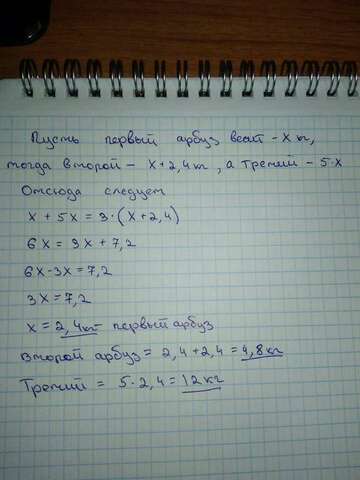 Пусть первый арбуз весит - х кг,
тогда второй - х+2,4кг, а третий - 5·х
Отсюда следует
х + 5х = 3·(х+2,4)
6х = 3х + 7,2
6х-3х=7,2
3х=7,2
х = 2,4кг - первый арбуз
Второй арбуз = 2,4+2,4=4,8кг
Третий = 5·2,4=12кг